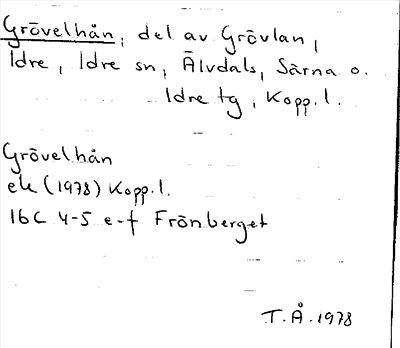 Grövelhån, del av Grövlan,
Idre, Idre sn, Älvdals, Särna o.
Idre tg, Kopp. l.
Grövelhån
ek (1978) Kopp. l.
16C 4-5 e-f Frönberget
T. Å. 1978